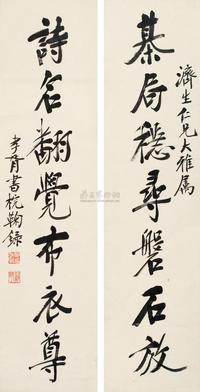 濟生仁兄大雅属
棊局穩尋磐石放
詩名翻覺布衣尊
孝胥書枕鞠録